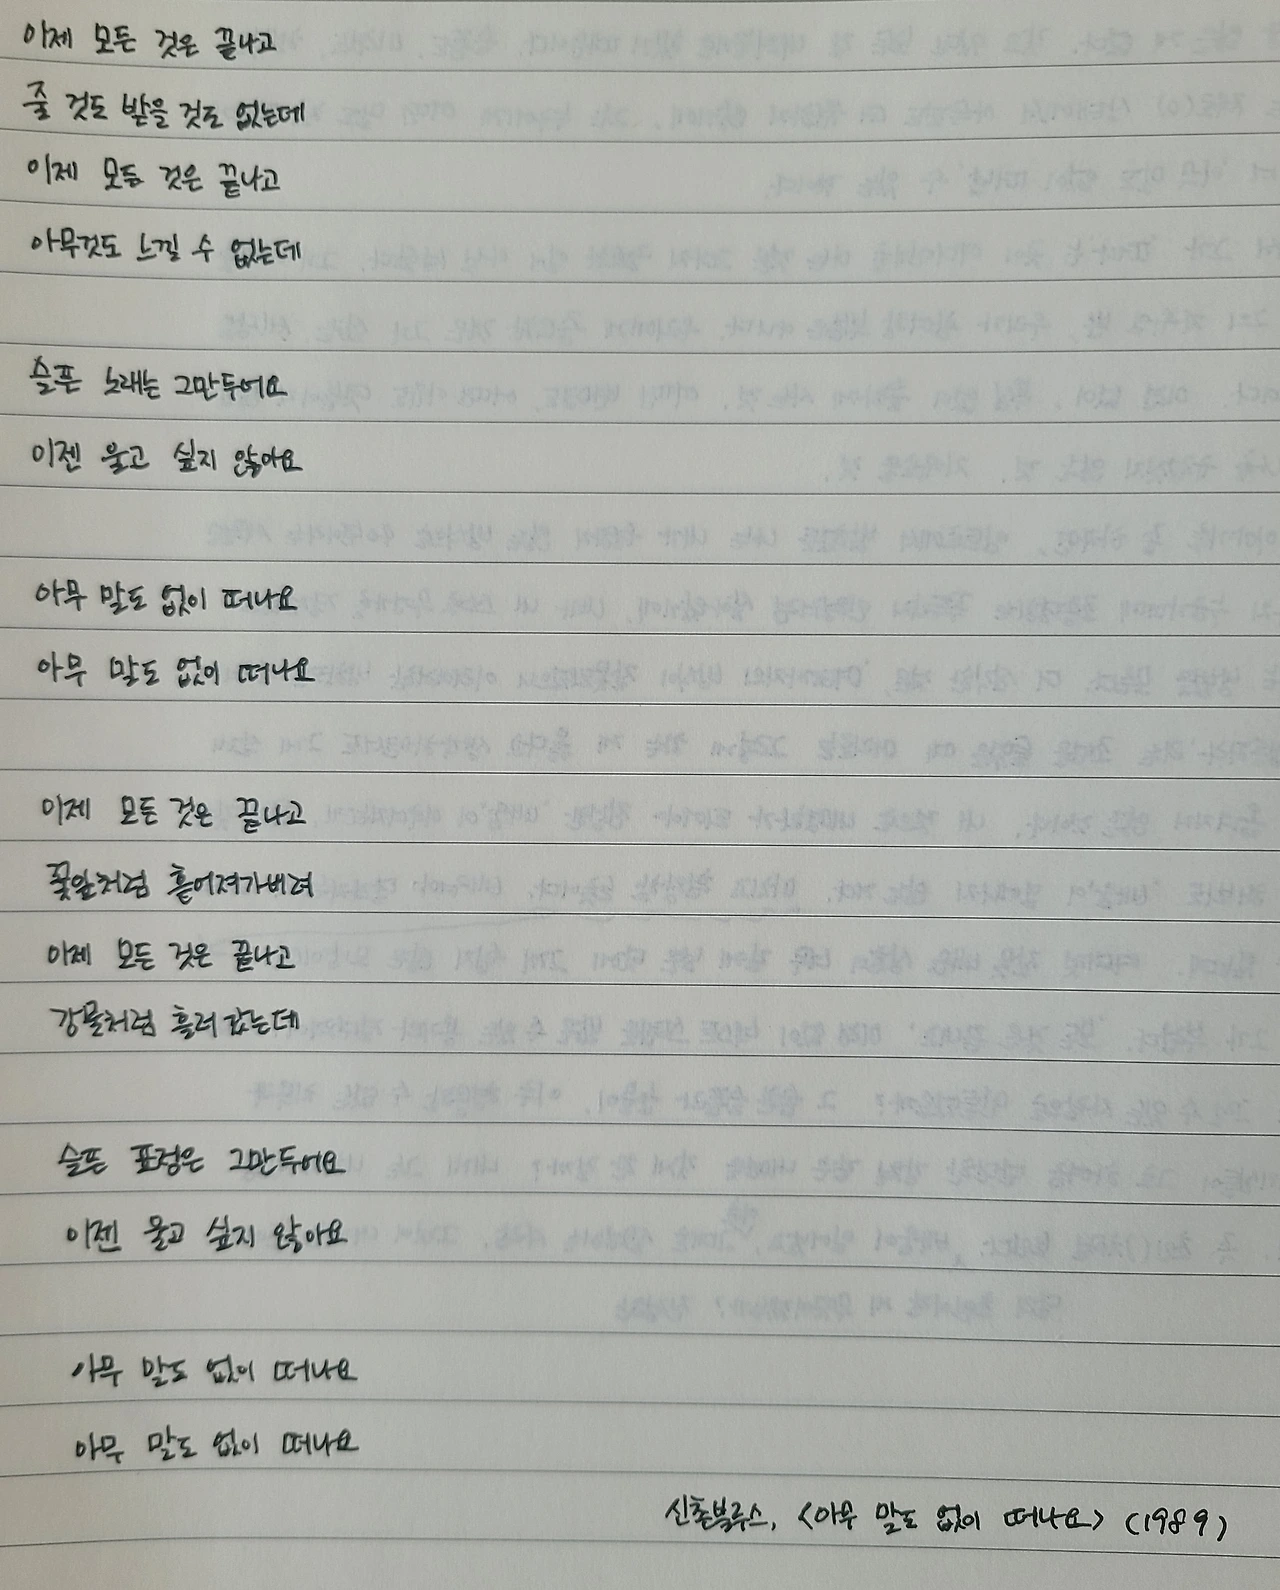 이제 모든 것은 끝나고
줄 것도 받을 것도 없는데
이제 모든 것은 끝나고
아무것도 느낄 수 없는데
슬픈 노래는 그만두어요
이젠 울고 싶지 않아요
아무 말도 없이 떠나요
아무 말도 없이 떠나요
이제 모든 것은 끝나고
꽃잎처럼 흩어져가버려
이제 모든 것은 끝나고
강물처럼 흘러 갔는데
슬픈 표정은 그만두어요
이젠 울고 싶지 않아요
아무 말도 없이 떠나요
아무 말도 없이 떠나요
신촌블루스, <아무 말도 없이 떠나요> (1989)